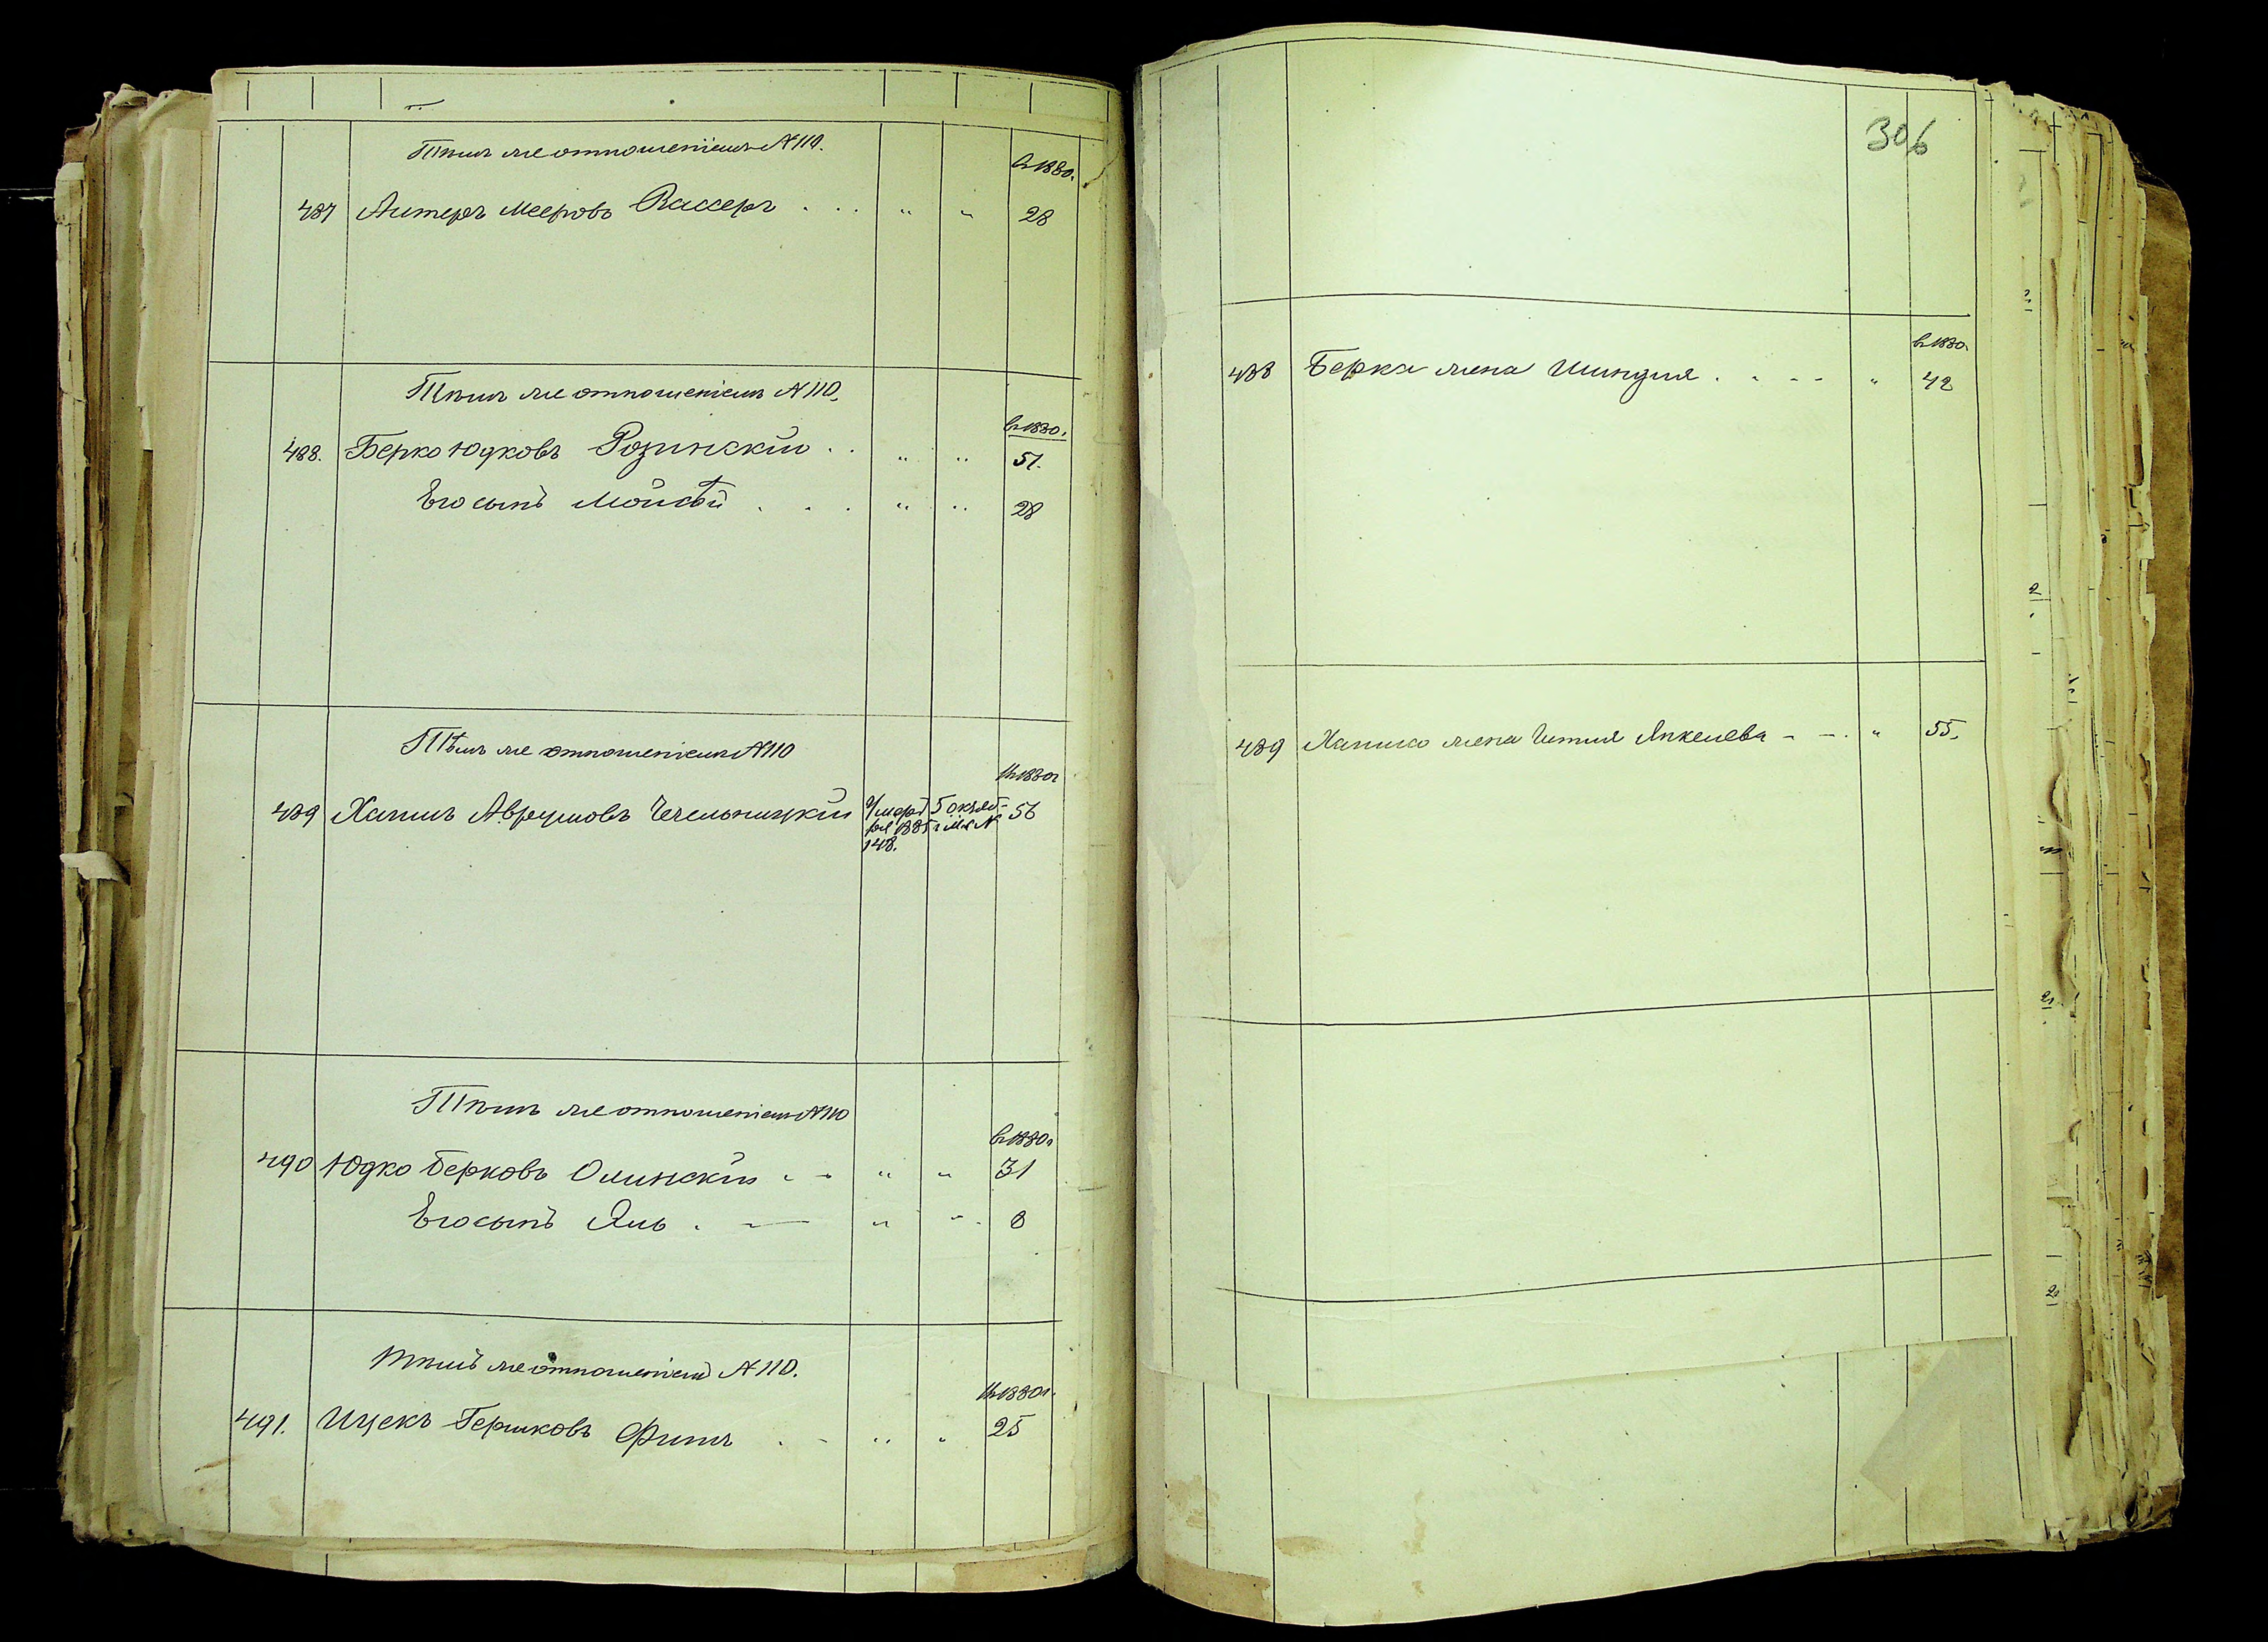 Тѣмъ же отношеніемъ № 110.
в 1880.
487 Алтеръ Мееровъ Вассеръ . . . " " 28
Тѣмъ же отношеніемъ № 110.
в 1880.
488. Берко Юдковъ Розинскій . . " " 51.
Его сынъ Мойсѣй . . . " " 28
Тѣмъ же отношеніемъ № 110
въ 1880 г
489 Хаимъ Аврумовъ Чечельницкій умеръ 5 октяб- 56
ря 1885 г М. №
148.
Тѣмъ же отношеніемъ № 110
в 1880 г
490 Юдко Берковъ Олинскій " " 31
Его сынъ Янь . " " 8
Тѣмъ же отношеніемъ № 110.
въ 1880 г.
491. Ицекъ Гершковъ Финъ . - " " 25
306
в 1880
488 Берка жена Шиндля . . - - " 42
489 Хаима жена Янкелева - - . " 55.